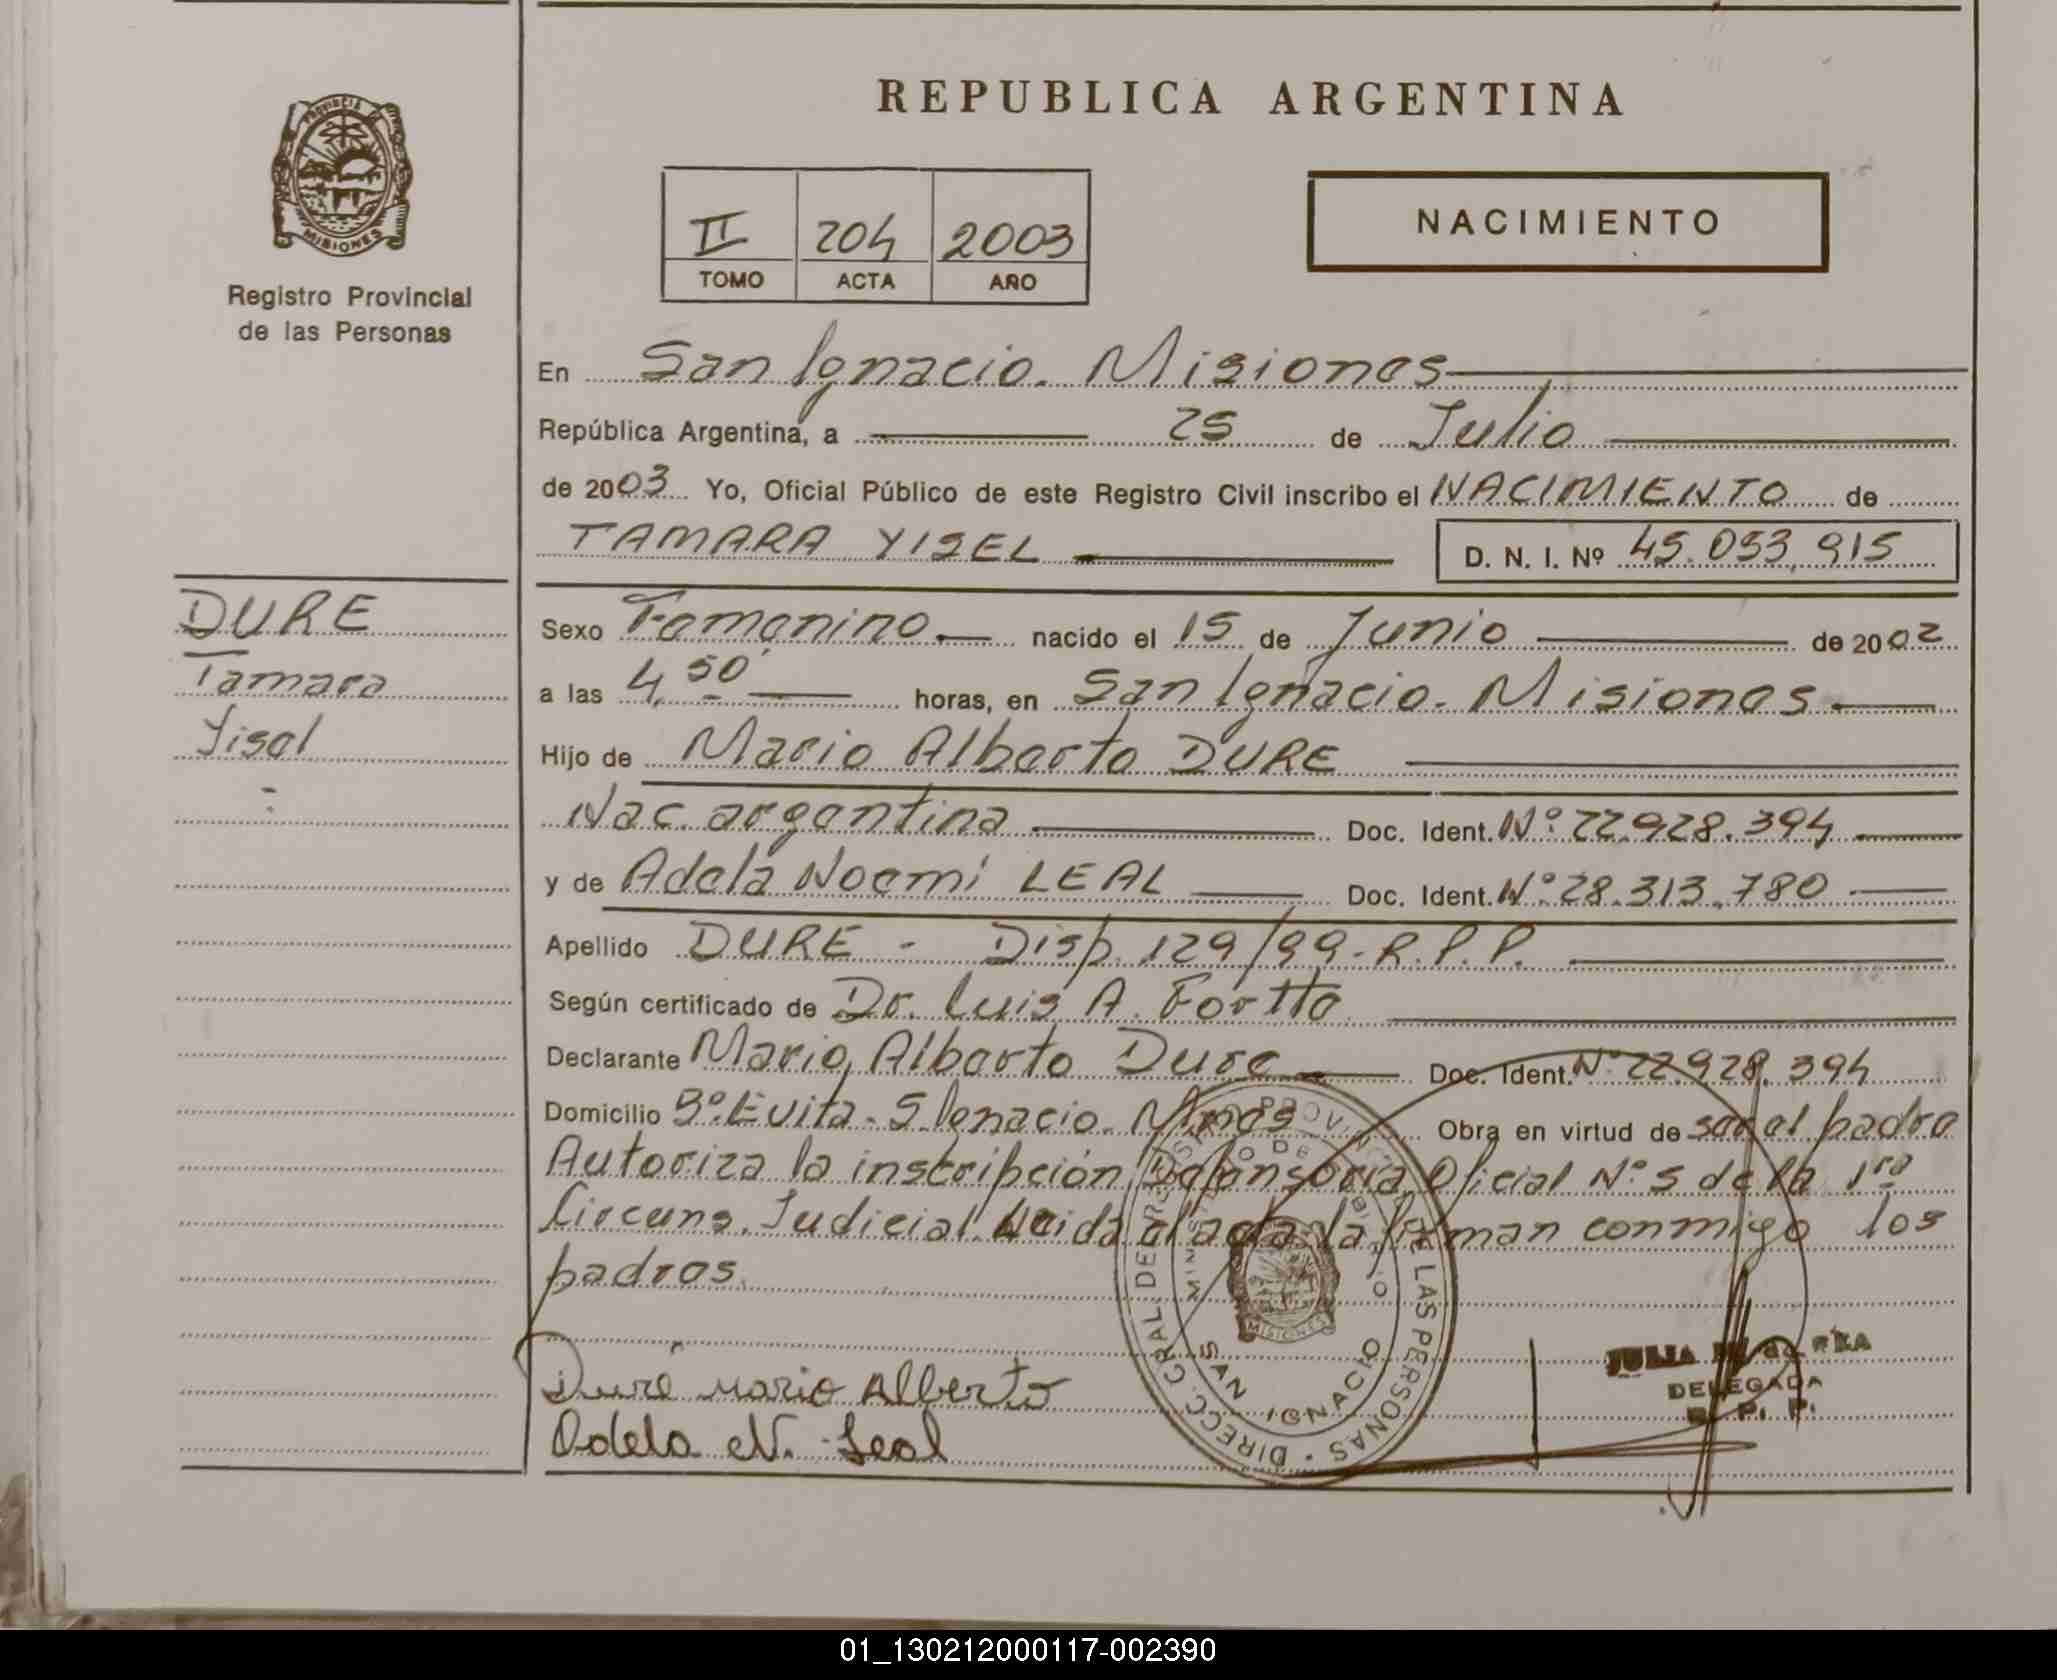 REPUBLICA ARGENTINA
PROVINCIA
MISIONES
Registro Provincial
de las Personas
II 204 2003
TOMO ACTA AÑO
NACIMIENTO
En San Ignacio. Misiones
República Argentina, a 25 de Julio
de 2003 Yo, Oficial Público de este Registro Civil inscribo el NACIMIENTO de
TAMARA YISEL D. N. I. Nº 45.053.915
DURE
Tamara
Yisel
Sexo Femenino nacido el 15 de Junio de 2002
a las 4,50 horas, en San Ignacio. Misiones
Hijo de Mario Alberto DURE
Nac. argentina Doc. Ident. Nº 22.928.394
y de Adela Noemi LEAL Doc. Ident. Nº 28.313.780
Apellido DURE - Disp. 129/99-R.P.P.
Según certificado de Dr. Luis A.
Declarante Mario Alberto Dure Doc. Ident. Nº 22.928.394
Domicilio Bº Evita - S. Ignacio. Mnes Obra en virtud de ser el padre
Autoriza la inscripción Defensoria Oficial Nº 5 de la 1ra
Circuns. Judicial. Leida el acta la firman conmigo los
padres.
Duré Mario Alberto
Adela N. Leal
DIRECC. GRAL. DE REGISTRO PROVINCIAL DE LAS PERSONAS
SAN IGNACIO
MISIONES
JULIA
DELEGADA
R. P. P.
01_130212000117-002390